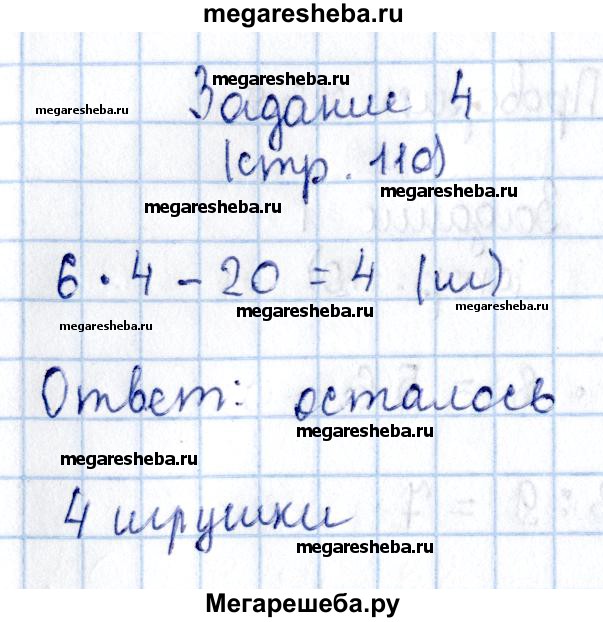 megaresheba.ru
megaresheba.ru
megaresheba.ru
Задание 4
(стр. 110)
megaresheba.ru
megaresheba.ru
6 · 4 - 20 = 4 (ш)
megaresheba.ru
megaresheba.ru
megaresheba.ru
Ответ: осталось
megaresheba.ru
megaresheba.ru
4 игрушки
megaresheba.ru
Мегарешеба.ру